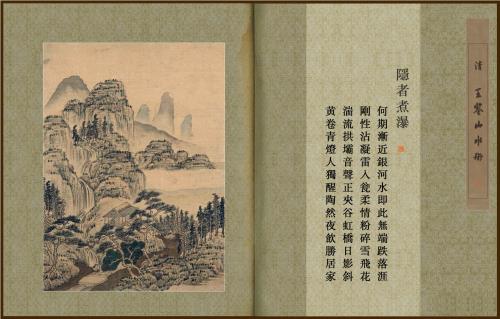 清 王 山水
隱者煮瀑
何期漸近銀河水即此無端跌落涯
剛性沾凝雷入瓮柔情粉碎雪飛花
湍流拱壩音聲正夾谷虹橋日影斜
黃卷青燈人獨醒陶然夜飲勝居家